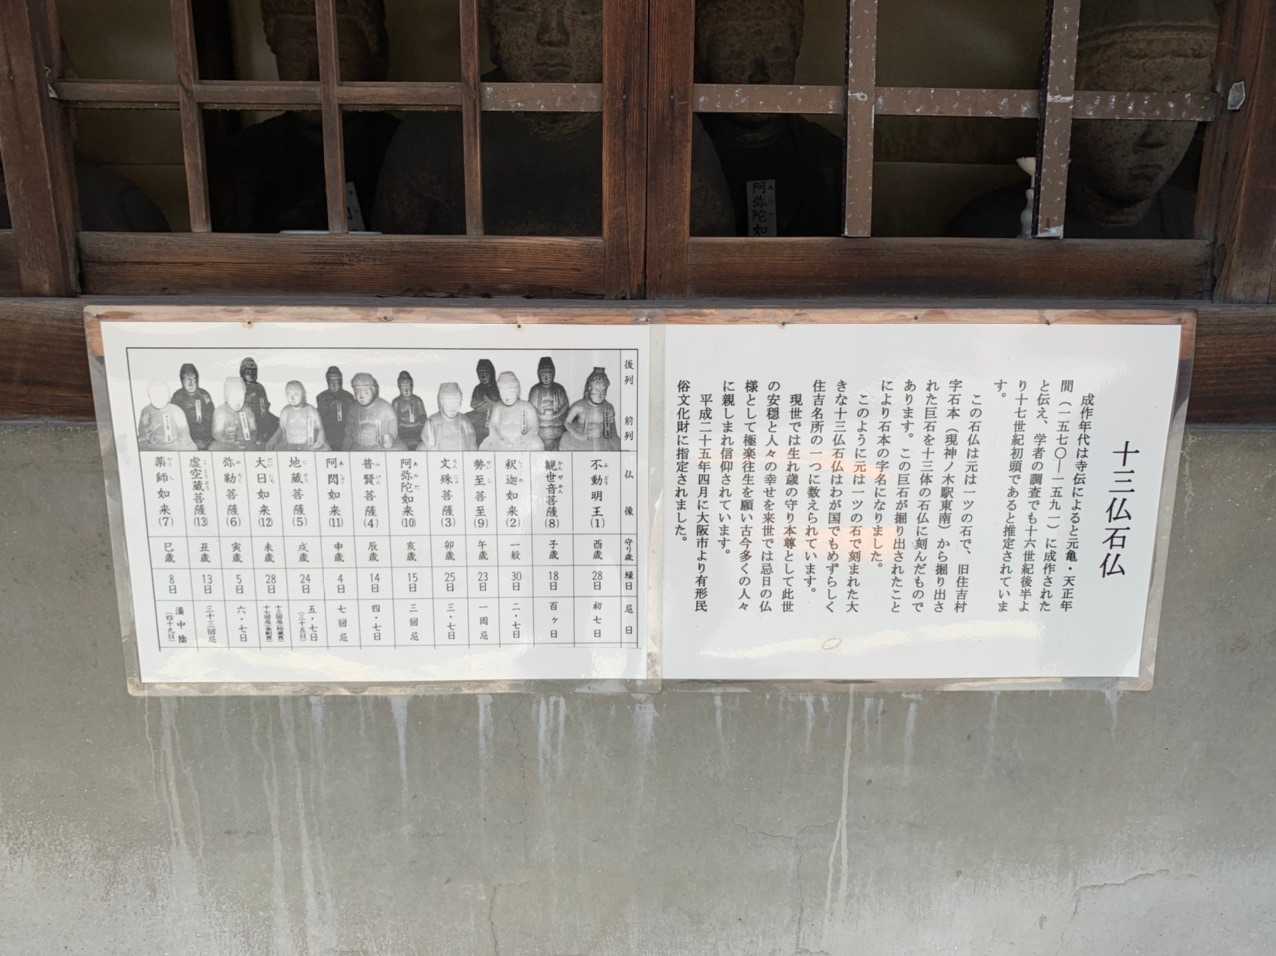 阿弥陀如
十三仏石仏
成作年代は寺伝によると元亀・天正年
間（一五七〇―一五九一）に成作された
と伝え、学者の調査でも十六世紀後半よ
り十七世紀初頭であると推定されていま
す。
この石仏は元は一ツの石で、旧住吉村
字石本（現神ノ木駅東南）から掘り出さ
れた巨石を十三体の石仏に刻んだもので
あります。この巨石が掘り出されたこと
により石本の字名になりました。
このように元は一ツの石で刻まれた大
きな十三仏石仏はわが国でもめずらしく
住吉名所の一つに数えられています。
現世では生れ歳の守り本尊として此世
の安穏と人々の幸せを来世では忌日の仏
様として極楽往生を願い古今多くの人々
に親しまれ信仰されています。
平成二十五年四月に大阪市より有形民
俗文化財に指定されました。
後列 前列 仏像 守り歳 縁日 忌日
不動明王(1) 酉歳 28日 初七日
観世音菩薩(8) 子歳 18日 百ヶ日
釈迦如来(2) 一般 30日 二・七日
勢至菩薩(9) 午歳 23日 一周忌
文殊菩薩(3) 卯歳 25日 三・七日
阿弥陀如来(10) 亥歳 15日 三回忌
普賢菩薩(4) 辰歳 14日 四・七日
阿閦如来(11) 申歳 4日 七回忌
地蔵菩薩(5) 戌歳 24日 五・七日（三十五日）
大日如来(12) 未歳 28日
弥勒菩薩(6) 寅歳 5日 六・七日
虚空蔵菩薩(13) 丑歳 13日 三十三回忌
薬師如来(7) 巳歳 8日 満中陰（四十九日）